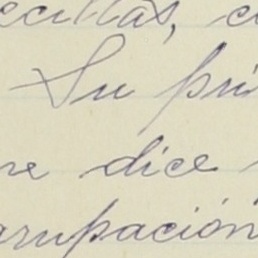 ecillas, c
Su pri
re dice
arupación